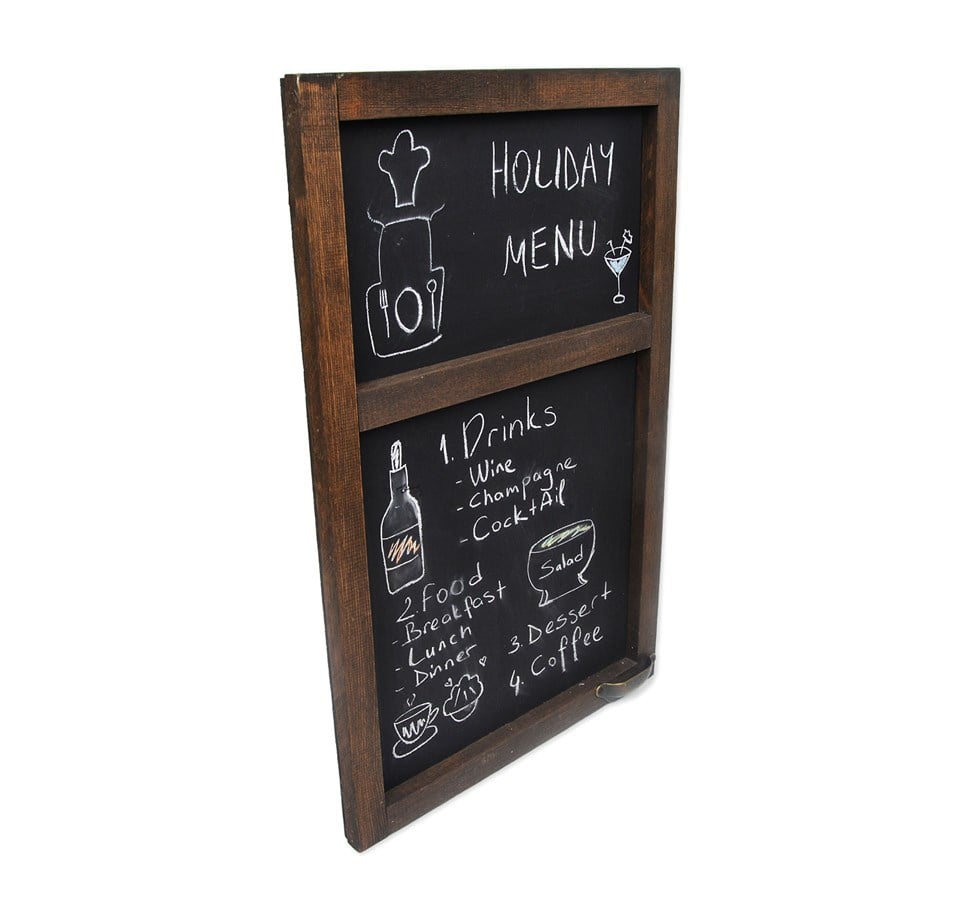 HOLIDAY
MENU
1. Drinks
- Wine
- Champagne
- CocktAil
Salad
2. Food
- Breakfast
- Lunch
- Dinner
3. Dessert
4. Coffee